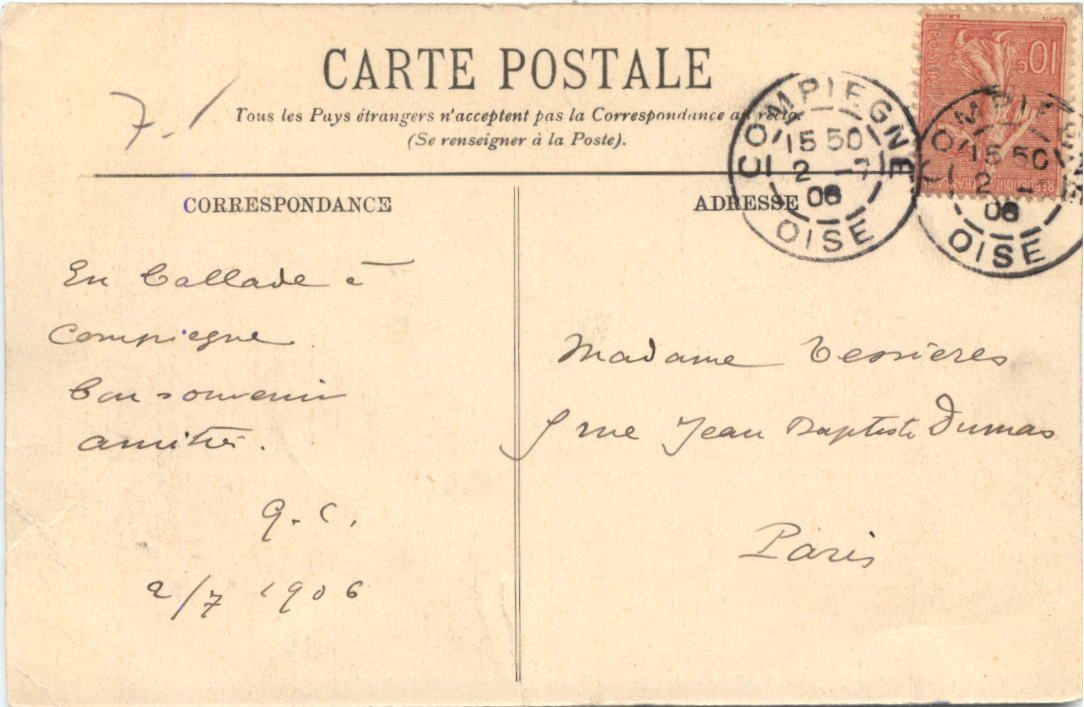 CARTE POSTALE
Tous les Pays étrangers n'acceptent pas la Correspondance au recto.
(Se renseigner à la Poste).
7.
CORRESPONDANCE
En ballade à
Compiegne
bon souvenir
amitiés.
G. C.
2/7 1906
ADRESSE
Madame Tessieres
rue Jean Baptiste Dumas
Paris
COMPIEGNE
15 50
2 - 7
06
OISE
COMPIEGNE
15 50
2 - 7
06
OISE
10c
POSTES
REPUBLIQUE FRANÇAISE